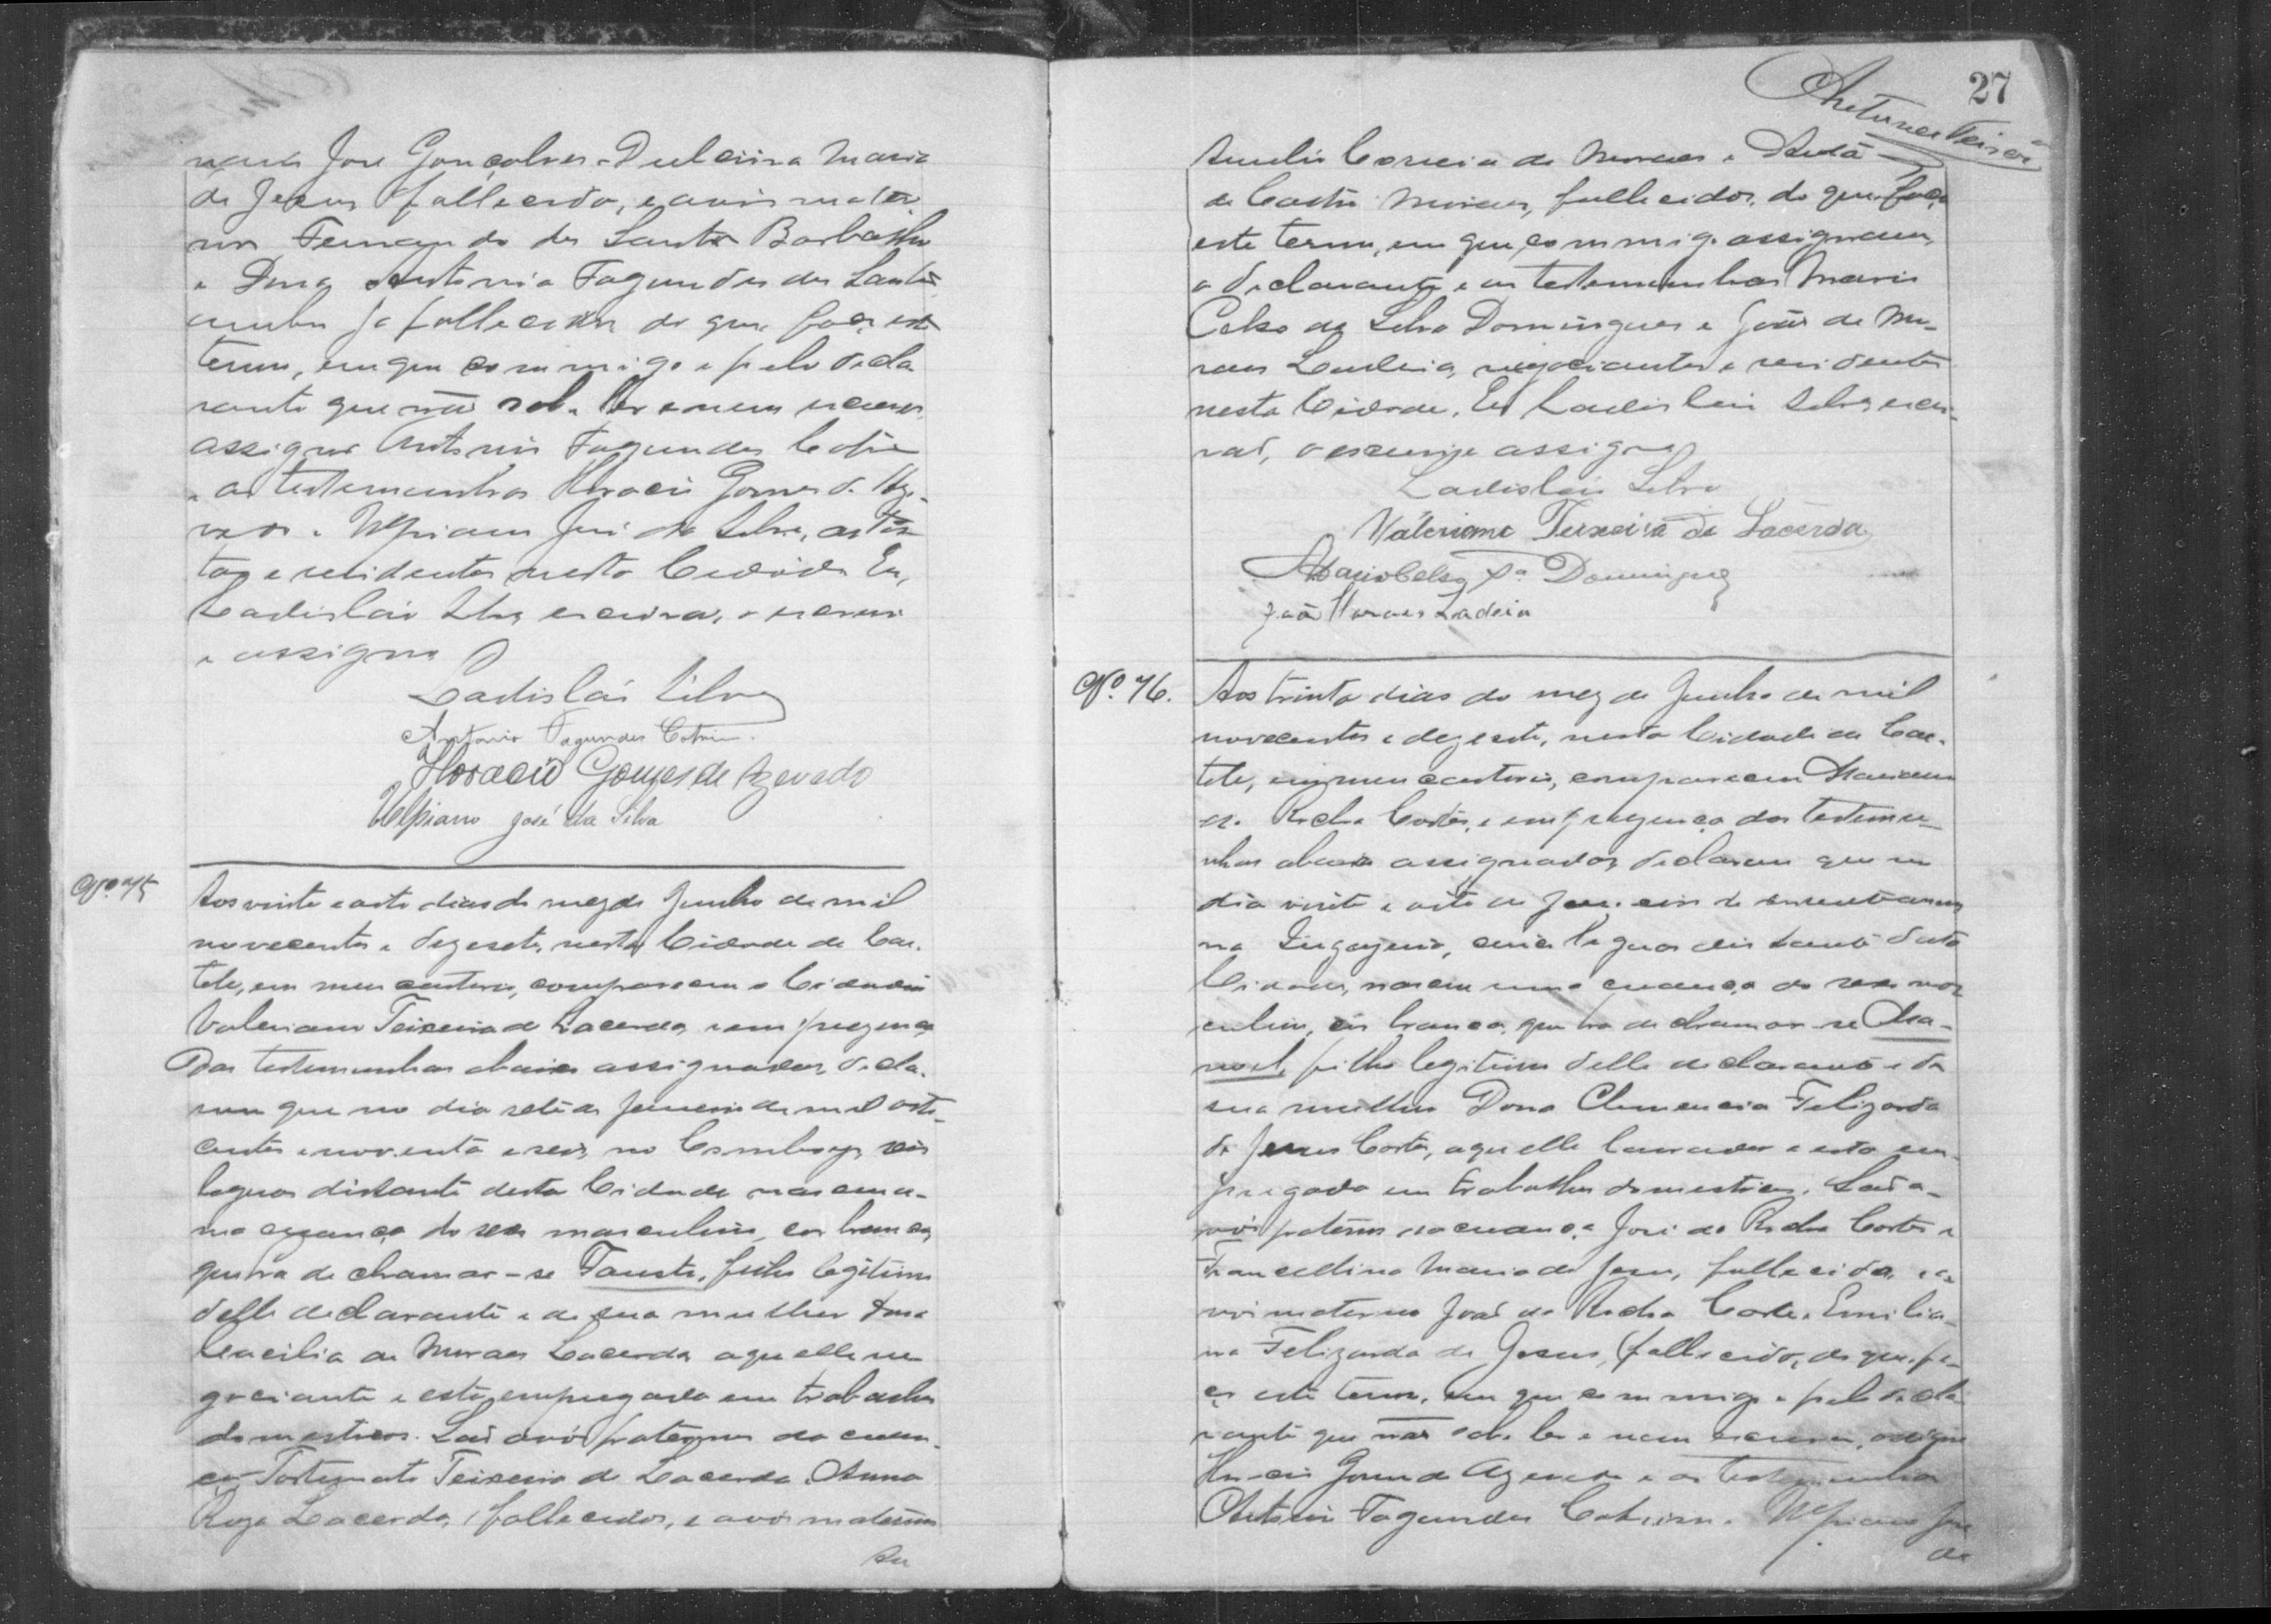 José Gonçalves e Dulcina Maria
de Jesus fallecido, e avós mater
nos Fernando dos Santos Barbosa
e Dona Antonia Fagundes dos Santos
ambos já fallecidos do que faço este
termo, em que commigo e pelo decla
rante que não sabe ler e nem escrever
assigna Antonio Fagundes Cotrim
e as testemunhas Horacio Gomes de Aze-
vedo e Ulpiano José da Silva, artis
tas e residentes nesta Cidade. Eu,
Ladisláo Silva escrivão, o escrevi
e assigno
Ladisláo Silva
Antonio Fagundes Cotrim.
Horacio Gomes de Azevedo
Ulpiano José da Silva
Nº 75
Aos vinte e oito dias do mez de Junho de mil
novecentos e dezesete, nesta Cidade de Cae-
teté, em meu cartorio, compareceu o Cidadão
Valeriano Teixeira de Lacerda, e em prezença
das testemunhas abaixo assignadas, decla-
rou que no dia sete de Janeiro de mil oito-
centos e noventa e seis, no seis
leguas distante desta Cidade nasceu u-
ma creança do sexo masculino, cor branca,
que ha de chamar-se Fausto, filho legitimo
delle declarante e de sua mulher Dona
Cecilia de Moraes Lacerda, aquelle ne-
gociante e esta empregada em trabalhos
domesticos. São avós paternos da crean-
ça Fortunato Teixeira de Lacerda e Anna
Roza Lacerda, fallecidos, e avós maternos
Au
27
Antunes Teixeira
Aurelio Correia de Moraes e
de Castro Moraes, fallecidos, do que faço
este termo, em que commigo assignam,
o declarante e as testemunhas Mario
Celso da Silva Domingues e João de Mo-
raes Ladeia, negociantes e residentes
nesta Cidade. Eu Ladisláo Silva escri-
vão, o escrevi e assigno
Ladisláo Silva
Valeriano Teixeira de Lacerda
Mario Celso Sª Domingues
João Moraes Ladeia
Nº. 76.
Aos trinta dias do mez de Junho de mil
novecentos e dezesete, nesta Cidade de Cae-
teté, em meu cartorio, compareceu Marianno
da Rocha Cortes, e em prezença das testemu-
nhas abaixo assignadas, declarou que no
dia vinte e oito de Janeiro do corrente anno
na leguas distante desta
Cidade, nasceu uma creança do sexo mas
culino, cor branca, que ha de chamar-se Ma-
noel, filho legitimo delle declarante e de
sua mulher Dona Clemencia Felizarda
de Jesus Cortes, aquelle lavrador e esta em-
pregada em trabalhos domesticos. São a-
vós paternos da creança José da Rocha Cortes e
Francellina Maria de Jesus, fallecida, e a-
vós maternos João da Rocha Cortes e Emilia-
na Felizarda de Jesus, fallecido, do que fa-
ço este termo, em que commigo e pelo decla-
rante que não sabe ler e nem escrever, assigna
Horacio Gomes de Azevedo e as testemunhas
Antonio Fagundes Cotrim e Ulpiano José
da